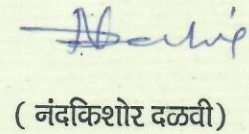 ( नंदकिशोर दळवी)